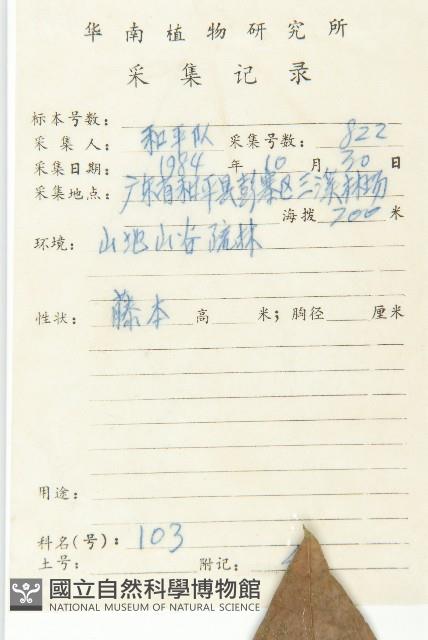 华南植物研究所
采集记录
标本号数：
采集人： 和平队 采集号数： 822
采集日期： 1984 年 10 月 30 日
采集地点： 广东省和平县彭寨区三溪林场
海拨 700 米
环境： 山地山谷疏林
性状： 藤本 高 米；胸径 厘米
用途：
科名(号)： 103
土名： 附记：
國立自然科學博物館
NATIONAL MUSEUM OF NATURAL SCIENCE